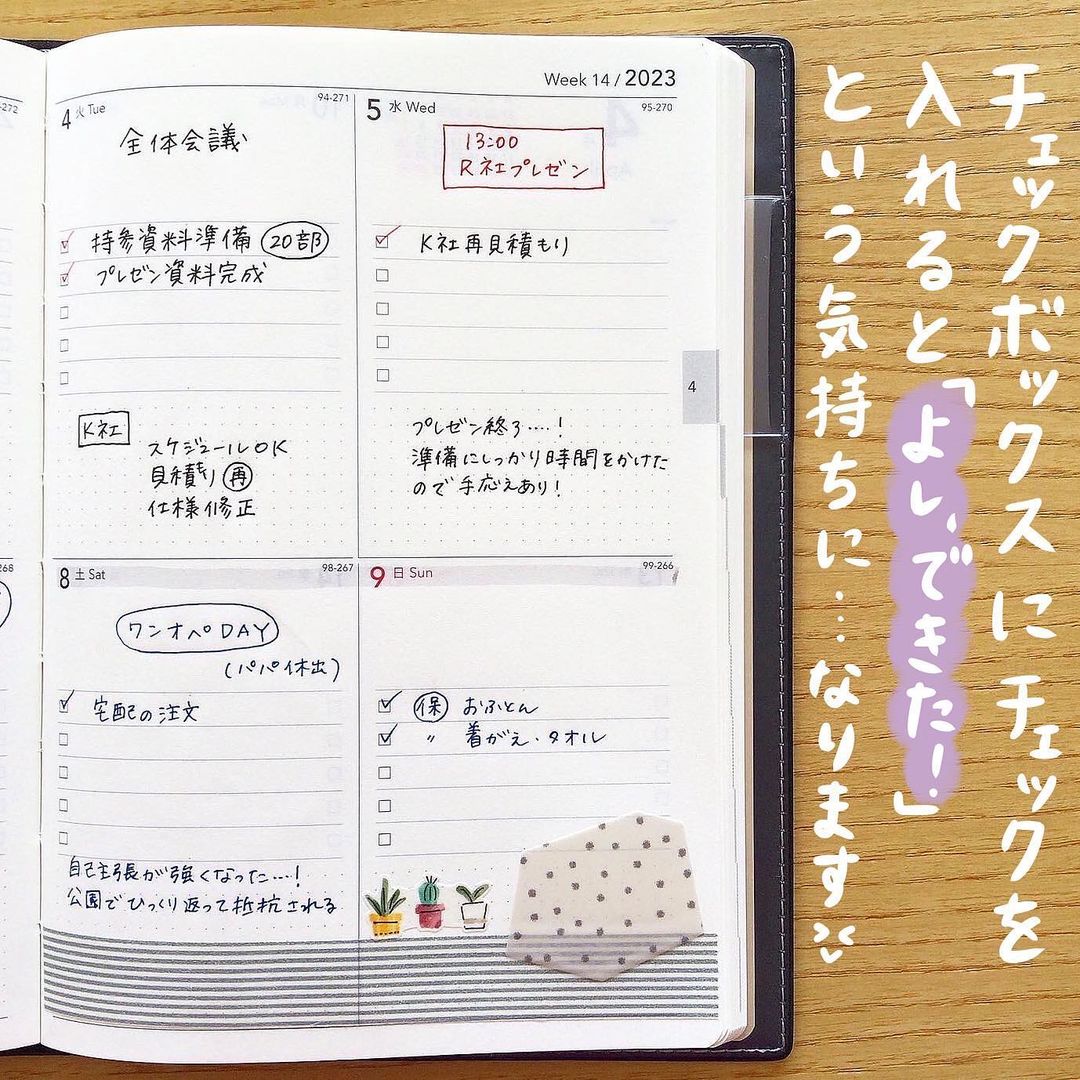 チェックボックスにチェックを
入れると「よし、できた！」
という気持ちに…なります
Week 14 / 2023
-272
4 火 Tue
94-271
全体会議
持参資料準備 20部
プレゼン資料完成
K社
スケジュールOK
見積もり 再
仕様修正
5 水 Wed
95-270
13:00
R社プレゼン
K社再見積もり
プレゼン終了‥‥！
準備にしっかり時間をかけた
ので手応えあり！
4
268
8 土 Sat
98-267
ワンオペDAY
(パパ休出)
宅配の注文
自己主張が強くなった…！
公園でひっくり返って抵抗される
9 日 Sun
99-266
保 おふとん
〃 着がえ・タオル